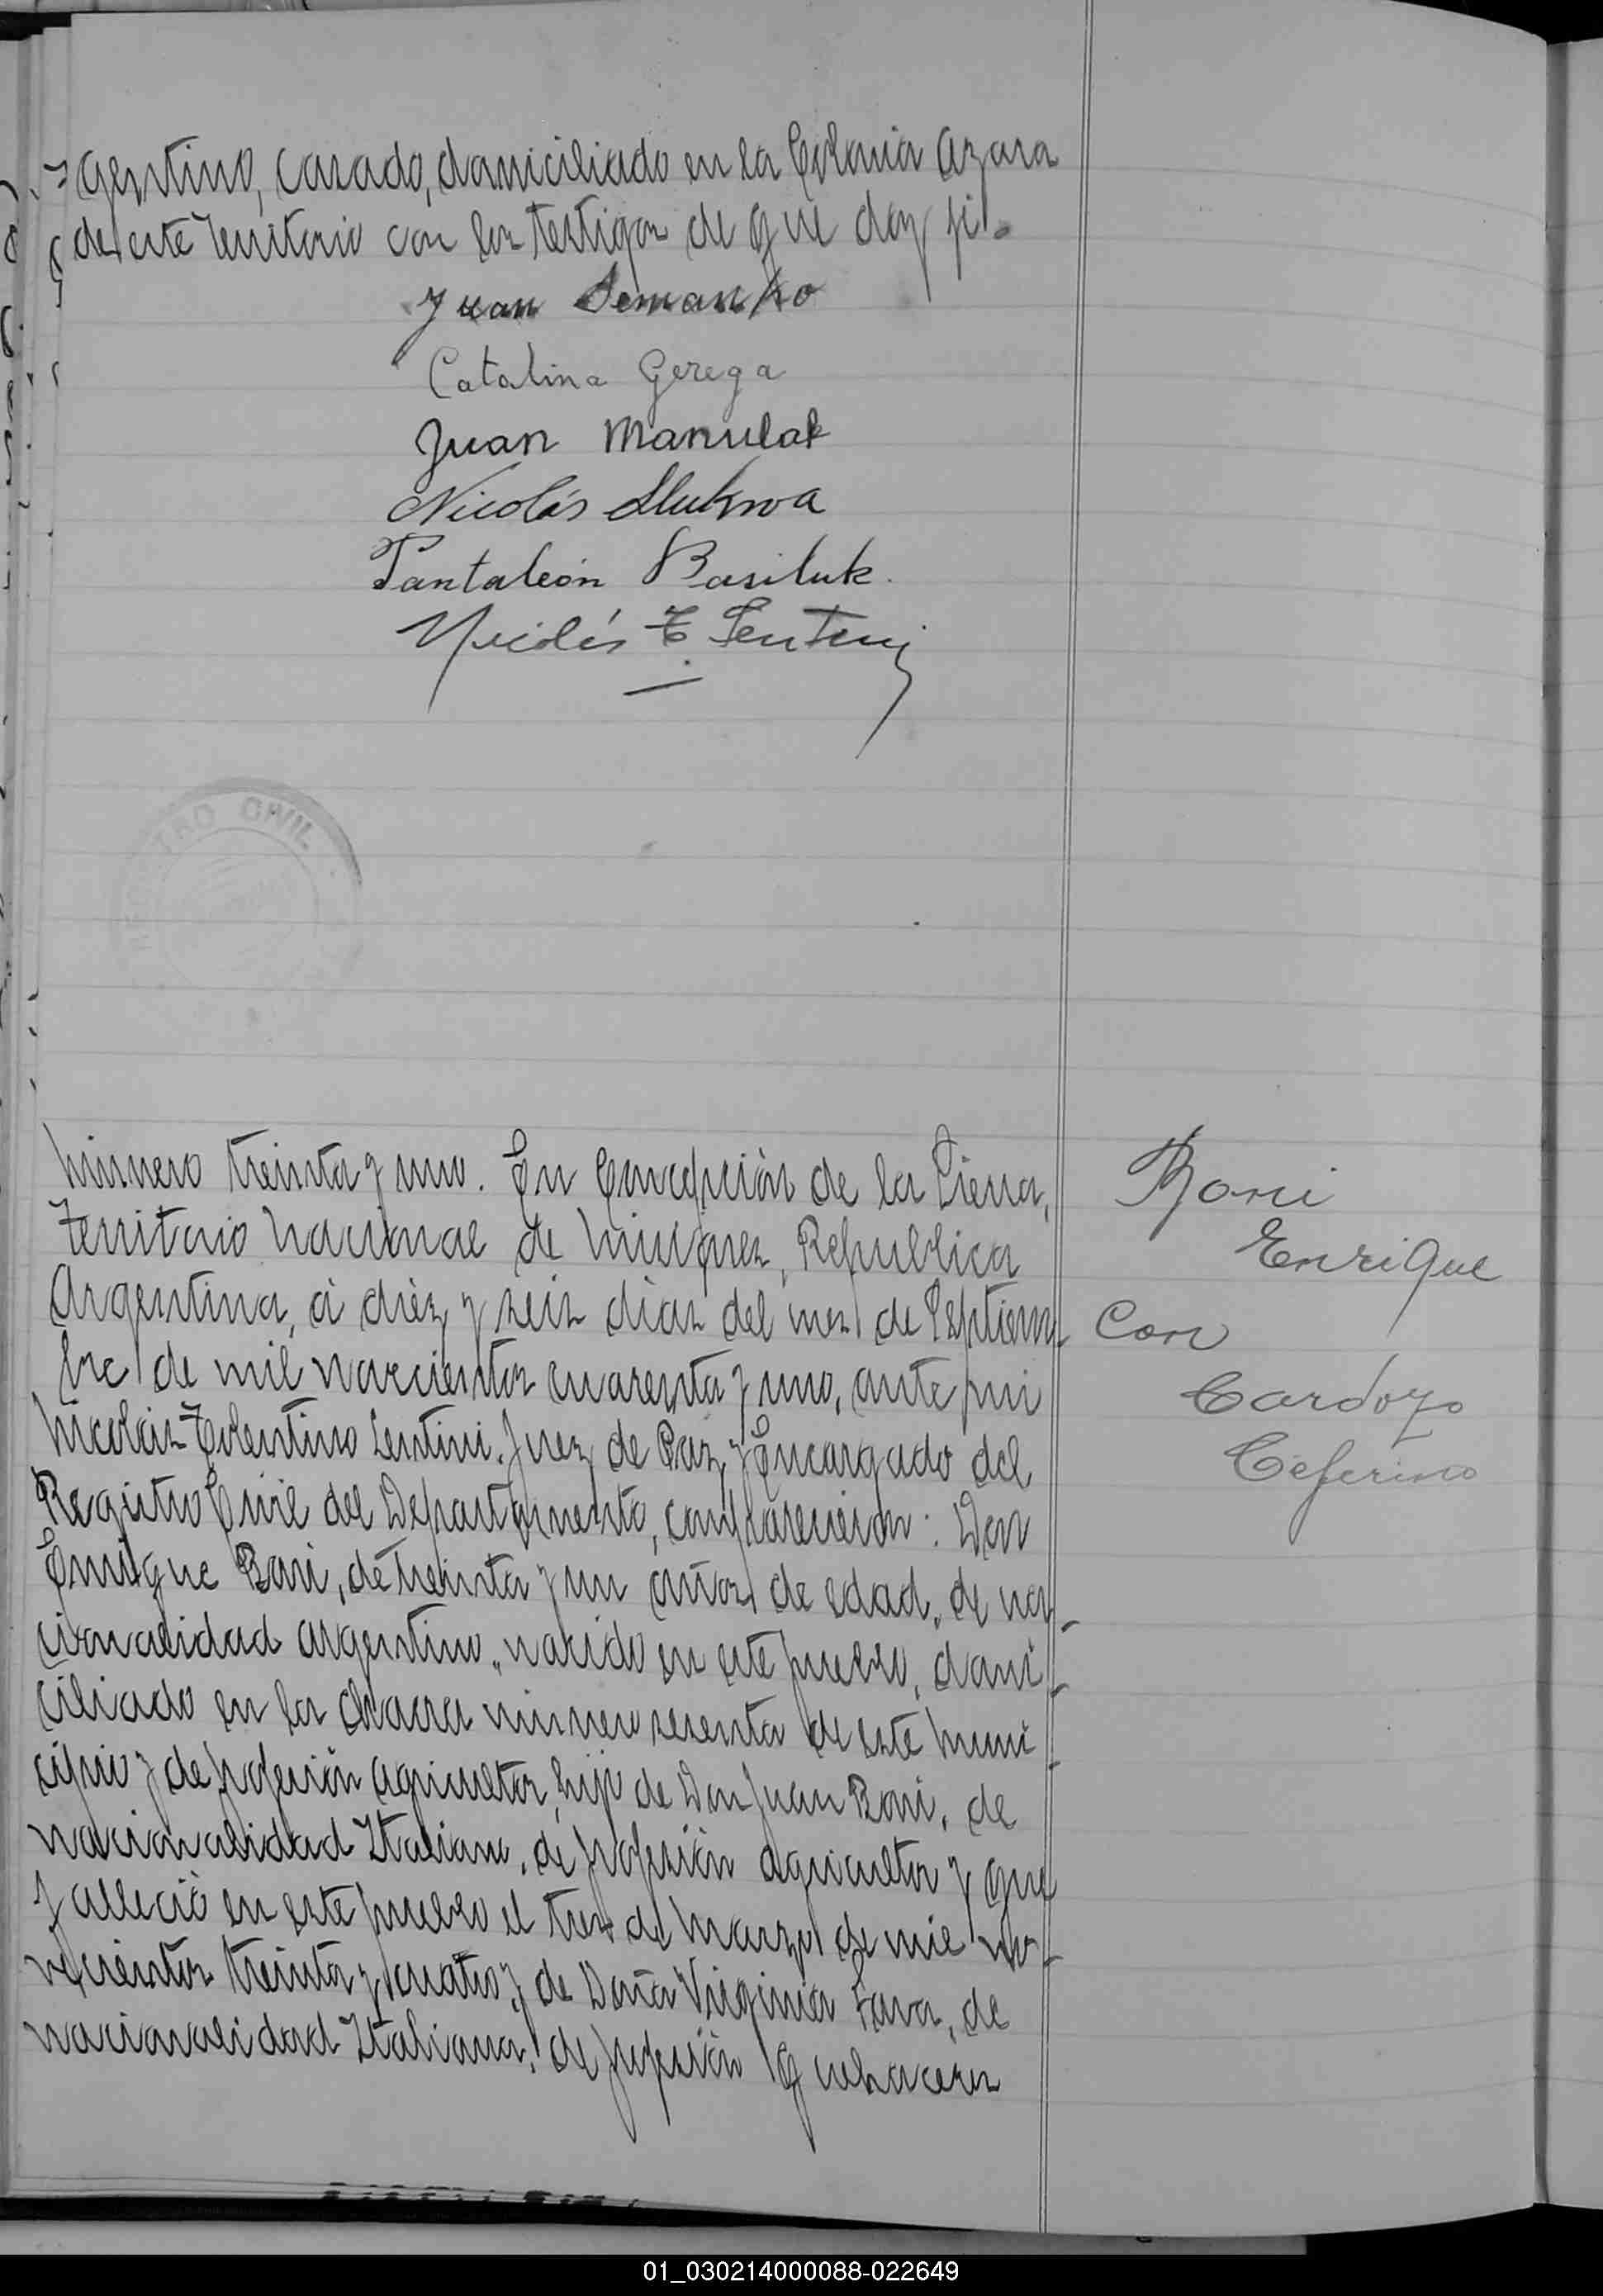 gentino, casado, domiciliado en la Colonia Azara
de este Territorio con los testigos de que doy fé.
Juan Semanko
Catalina Gerega
Juan Manulak
Nicolás
Pantaleón Basiluk.
Nicolás T. Lentini
REGISTRO CIVIL
Número treinta y uno. En Concepción de la Sierra,
Territorio Nacional de Misiones, Republica
Argentina, á diez y seis dias del mes de Septiem
bre de mil novecientos cuarenta y uno, ante mi
Nicolás Tolentino Lentini. Juez de Paz y Encargado del
Registro Civil del Departamento, comparecieron: Don
Enrique Boni, de treinta y un años de edad, de na-
cionalidad argentino, nacido en este pueblo, domi-
ciliado en la chacra número sesenta de este Muni-
cipio y de profesión agricultor, hijo de Don Juan Boni, de
nacionalidad Italiano, de profesión agricultor y que
falleció en este pueblo el tres de Marzo de mil no-
vecientos treinta y cuatro, y de Doña Virginia Fava, de
nacionalidad Italiana, de profesión quehaceres
Boni
Enrique
Con
Cardozo
Ceferina
01_030214000088-022649